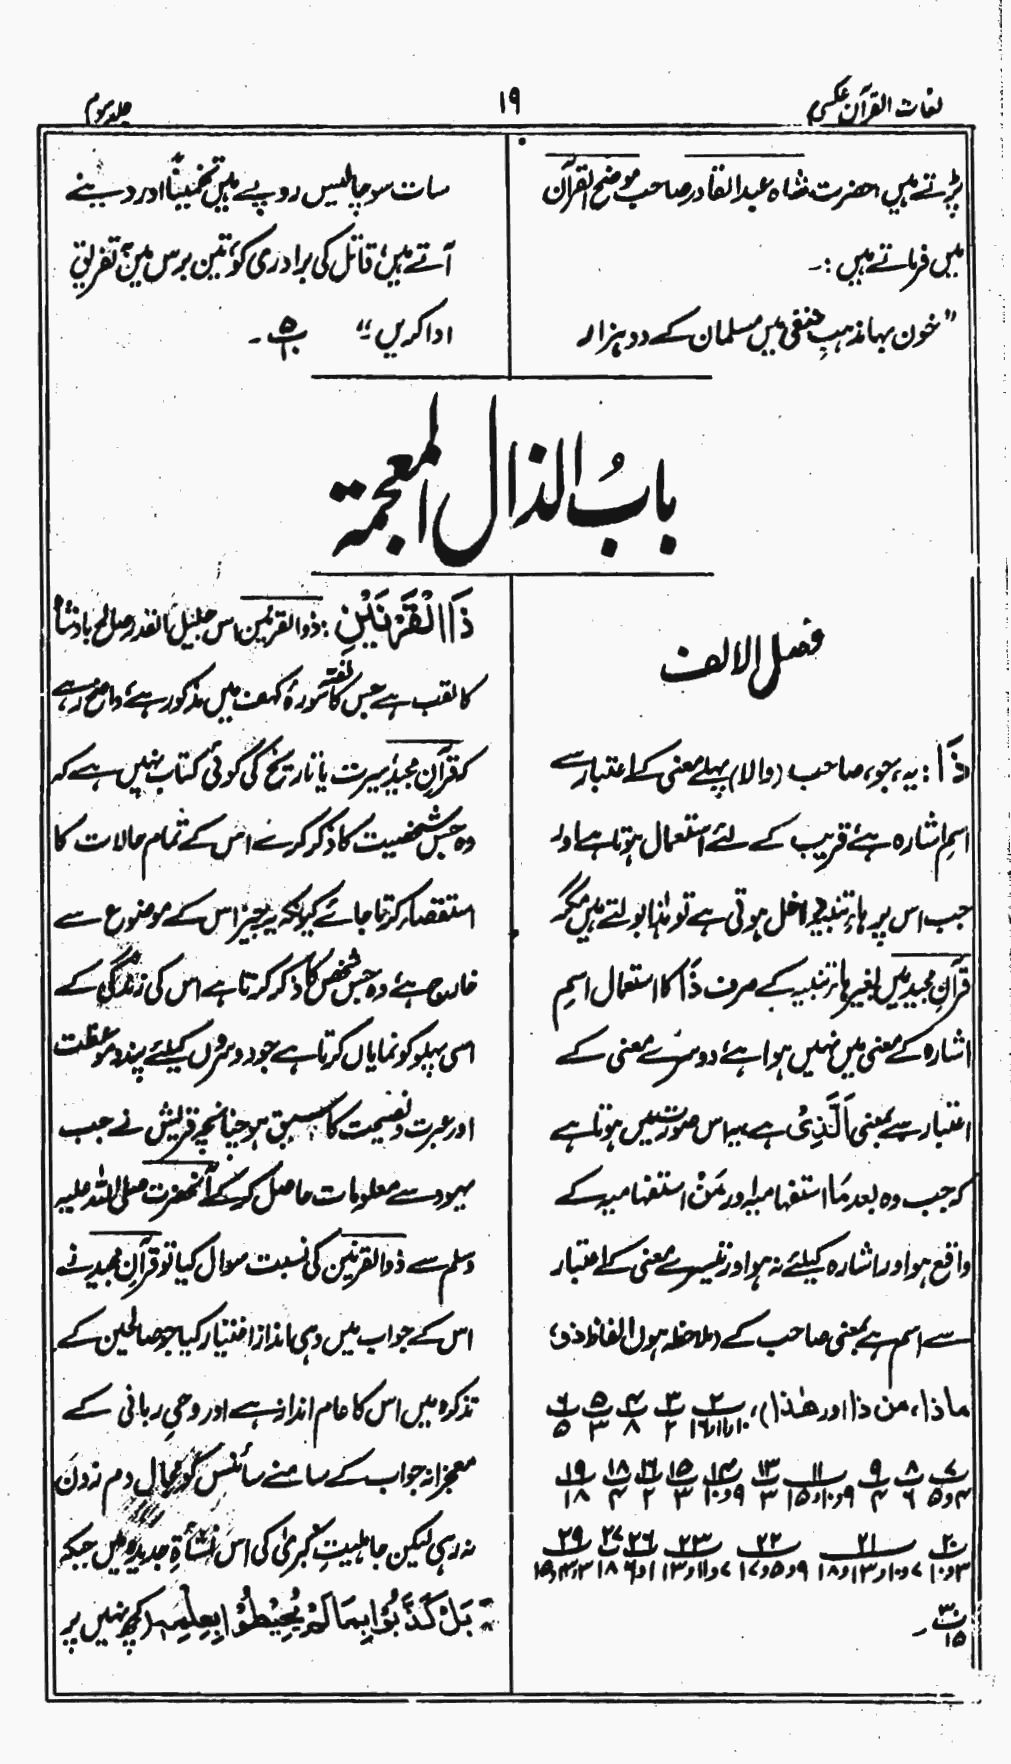 لغات القرآن عکسی
۱۹
جلد سوم
پڑتے ہیں حضرت شاہ عبدالقادر صاحب موضح القرآن
میں فرماتے ہیں :۔
"خون بہا مذہب حنفی میں مسلمان کے دو ہزار
سات سو چالیس روپے ہیں تخمیناً اور دینے
آتے ہیں قاتل کی برادری کو تین برس میں تفریق
ادا کریں۔"
بابُ الذال المعجمة
فصل الالف
ذَا : یہ، جو، صاحب (والا) پہلے معنی کے اعتبار سے
اسمِ اشارہ ہے قریب کے لئے استعمال ہوتا ہے اور
جب اس پر ہاء تنبیہ داخل ہوتی ہے تو ہٰذا بولتے ہیں مگر
قرآن مجید میں بغیر ہاء تنبیہ کے صرف ذَا کا استعمال اسمِ
اشارہ کے معنی میں نہیں ہوا ہے، دوسرے معنی کے
اعتبار سے بمعنی اَلَّذِیْ ہے یہ اس صورت میں ہوتا ہے
کہ جب وہ بعد مَا استفہامیہ اور مَنْ استفہامیہ کے
واقع ہو اور اشارہ کیلئے نہ ہو اور تیسرے معنی کے اعتبار
سے اسم ہے بمعنی صاحب کے (ملاحظہ ہوں الفاظ ذو،
ماذا، من ذا اور ھٰذا)،
ذَا الْقَرْنَيْنِ : ذوالقرنین اس جلیل القدر صالح بادشاہ
کا لقب ہے جس کا قصہ سورۂ کہف میں مذکور ہے، واضح رہے
کہ قرآن مجید سیرت یا تاریخ کی کوئی کتاب نہیں ہے کہ
وہ جس شخصیت کا ذکر کرے اس کے تمام حالات کا
استقصار کرتا جائے کیونکہ یہ چیز اس کے موضوع سے
خارج ہے، وہ جس شخص کا ذکر کرتا ہے اس کی زندگی کے
اسی پہلو کو نمایاں کرتا ہے جو دوسروں کیلئے پند و موعظت
اور عبرت و نصیحت کا سبق ہو چنانچہ قریش نے جب
یہود سے معلومات حاصل کر کے آنحضرت صلی اللہ علیہ
وسلم سے ذوالقرنین کی نسبت سوال کیا تو قرآن مجید نے
اس کے جواب میں وہی انداز اختیار کیا جو صالحین کے
تذکرہ میں اس کا عام انداز ہے اور وحیِ ربانی کے
معجزانہ جواب کے سامنے سائنس کو مجال دم زدن
نہ رہی لیکن جاہلیتِ کبریٰ کی اس نشأۃِ جدیدہ میں جبکہ
بَلْ كَذَّبُوْا بِمَا لَمْ يُحِيْطُوْا بِعِلْمِهٖ (کچھ نہیں پر